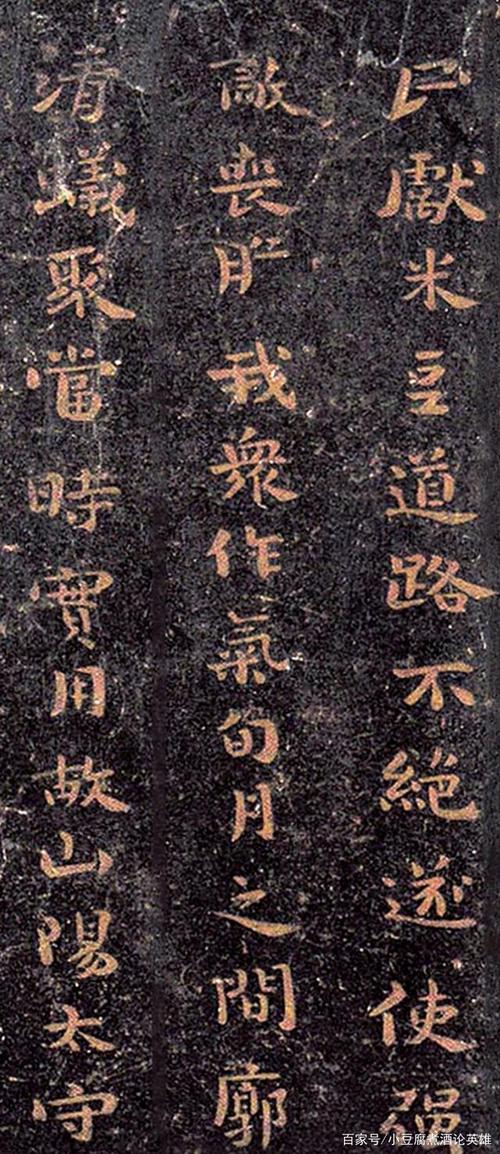 民獻米豆道路不絕遂使强
敵喪膽我衆作氣旬月之間廓
清蟻聚當時實用故山陽太守
百家号/小豆腐煮酒论英雄